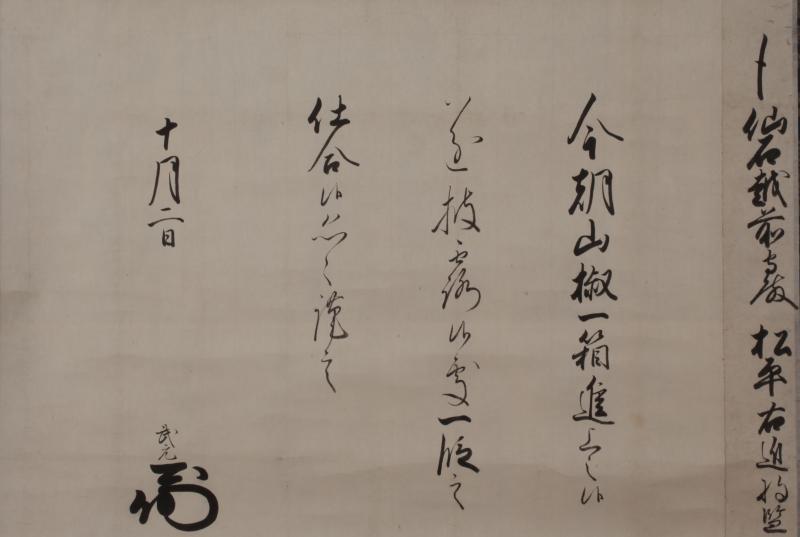 仙石越前守殿 松平右近将監
今朝山椒一箱進上之候
遂披露候處一段之
仕合候恐々謹言
十月二日
武元